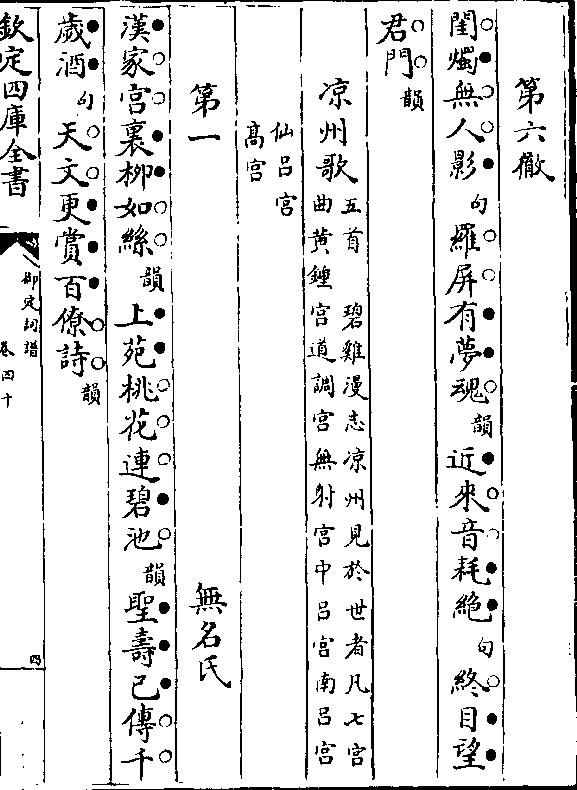 第六徹
閨燭無人影句羅屏有夢魂韻近來音耗絶句終目望
君門韻
凉州歌五首　碧雞漫志凉州見於世者凡七宫
曲黄鍾宫道調宫無射宫中吕宫南吕宫
仙吕宫
髙宫
第一　無名氏
漢家宫裏栁如絲韻上苑桃花連碧池韻聖壽已傳千
歲酒句天文更賞百僚詩韻
欽定四庫全書
御定詞譜
卷四十
四